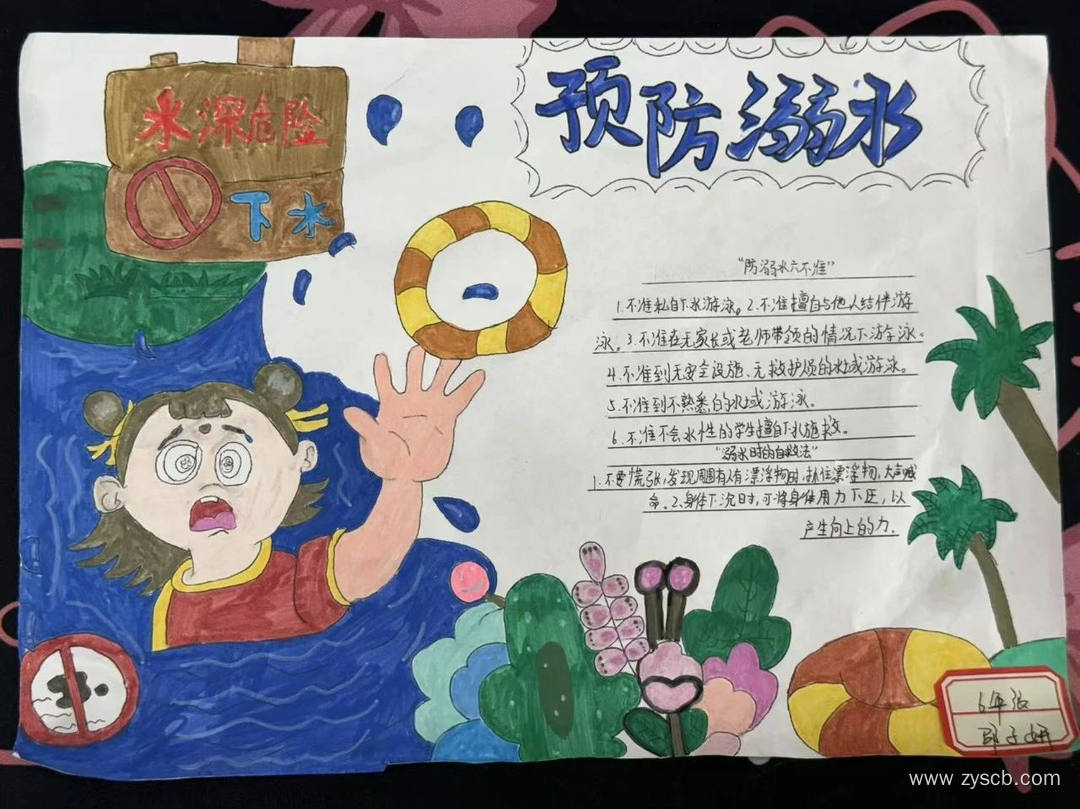 水深危险
下水
预防溺水
“防溺水六不准”
1.不准私自下水游泳。2.不准擅自与他人结伴游
泳。3.不准在无家长或老师带领的情况下游泳。
4.不准到无安全设施、无救护员的水域游泳。
5.不准到不熟悉的水域游泳。
6.不准不会水性的学生擅自下水施救。
“溺水时的自救法”
1.不要慌张,发现周围有人有漂浮物时,抓住漂浮物,大声喊
命。2.身体下沉时,可将身体用力下压,以
产生向上的力.
6年级
子妍
www.zyscb.com